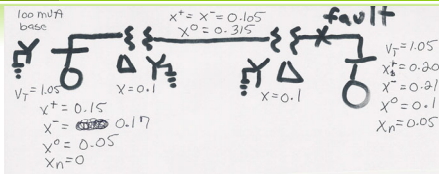 100 MVA
base
x⁺ = x⁻ = 0.105
x⁰ = 0.315
fault
V_T = 1.05
x⁺ = 0.15
x⁻ = 0.17
x⁰ = 0.05
x_n = 0
X = 0.1
X = 0.1
V_T = 1.05
x⁺ = 0.20
x⁻ = 0.21
x⁰ = 0.1
x_n = 0.05